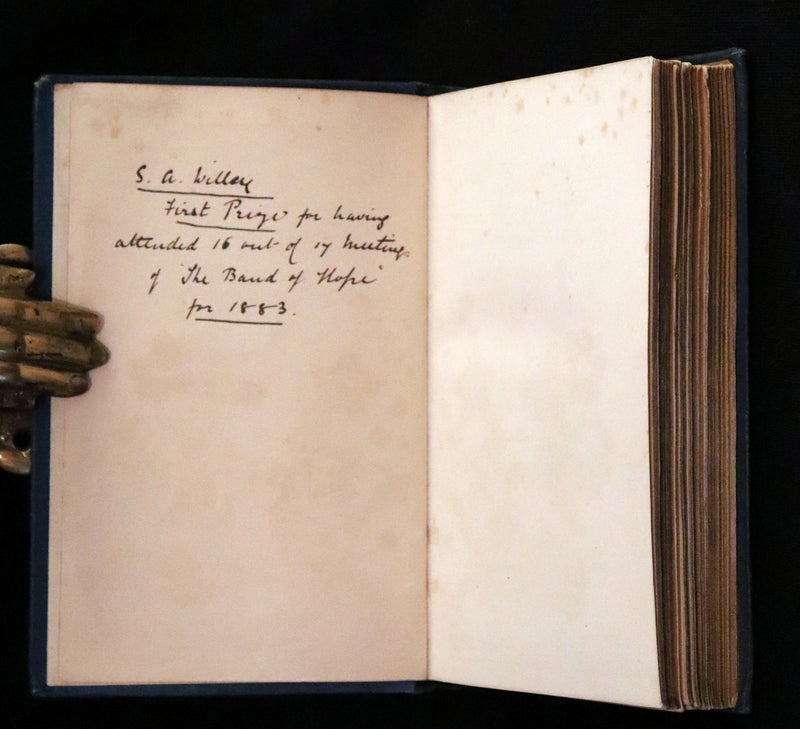 S. A. Willey
First Prize for having
attended 16 out of 17 meetings
of "The Band of Hope"
for 1883.